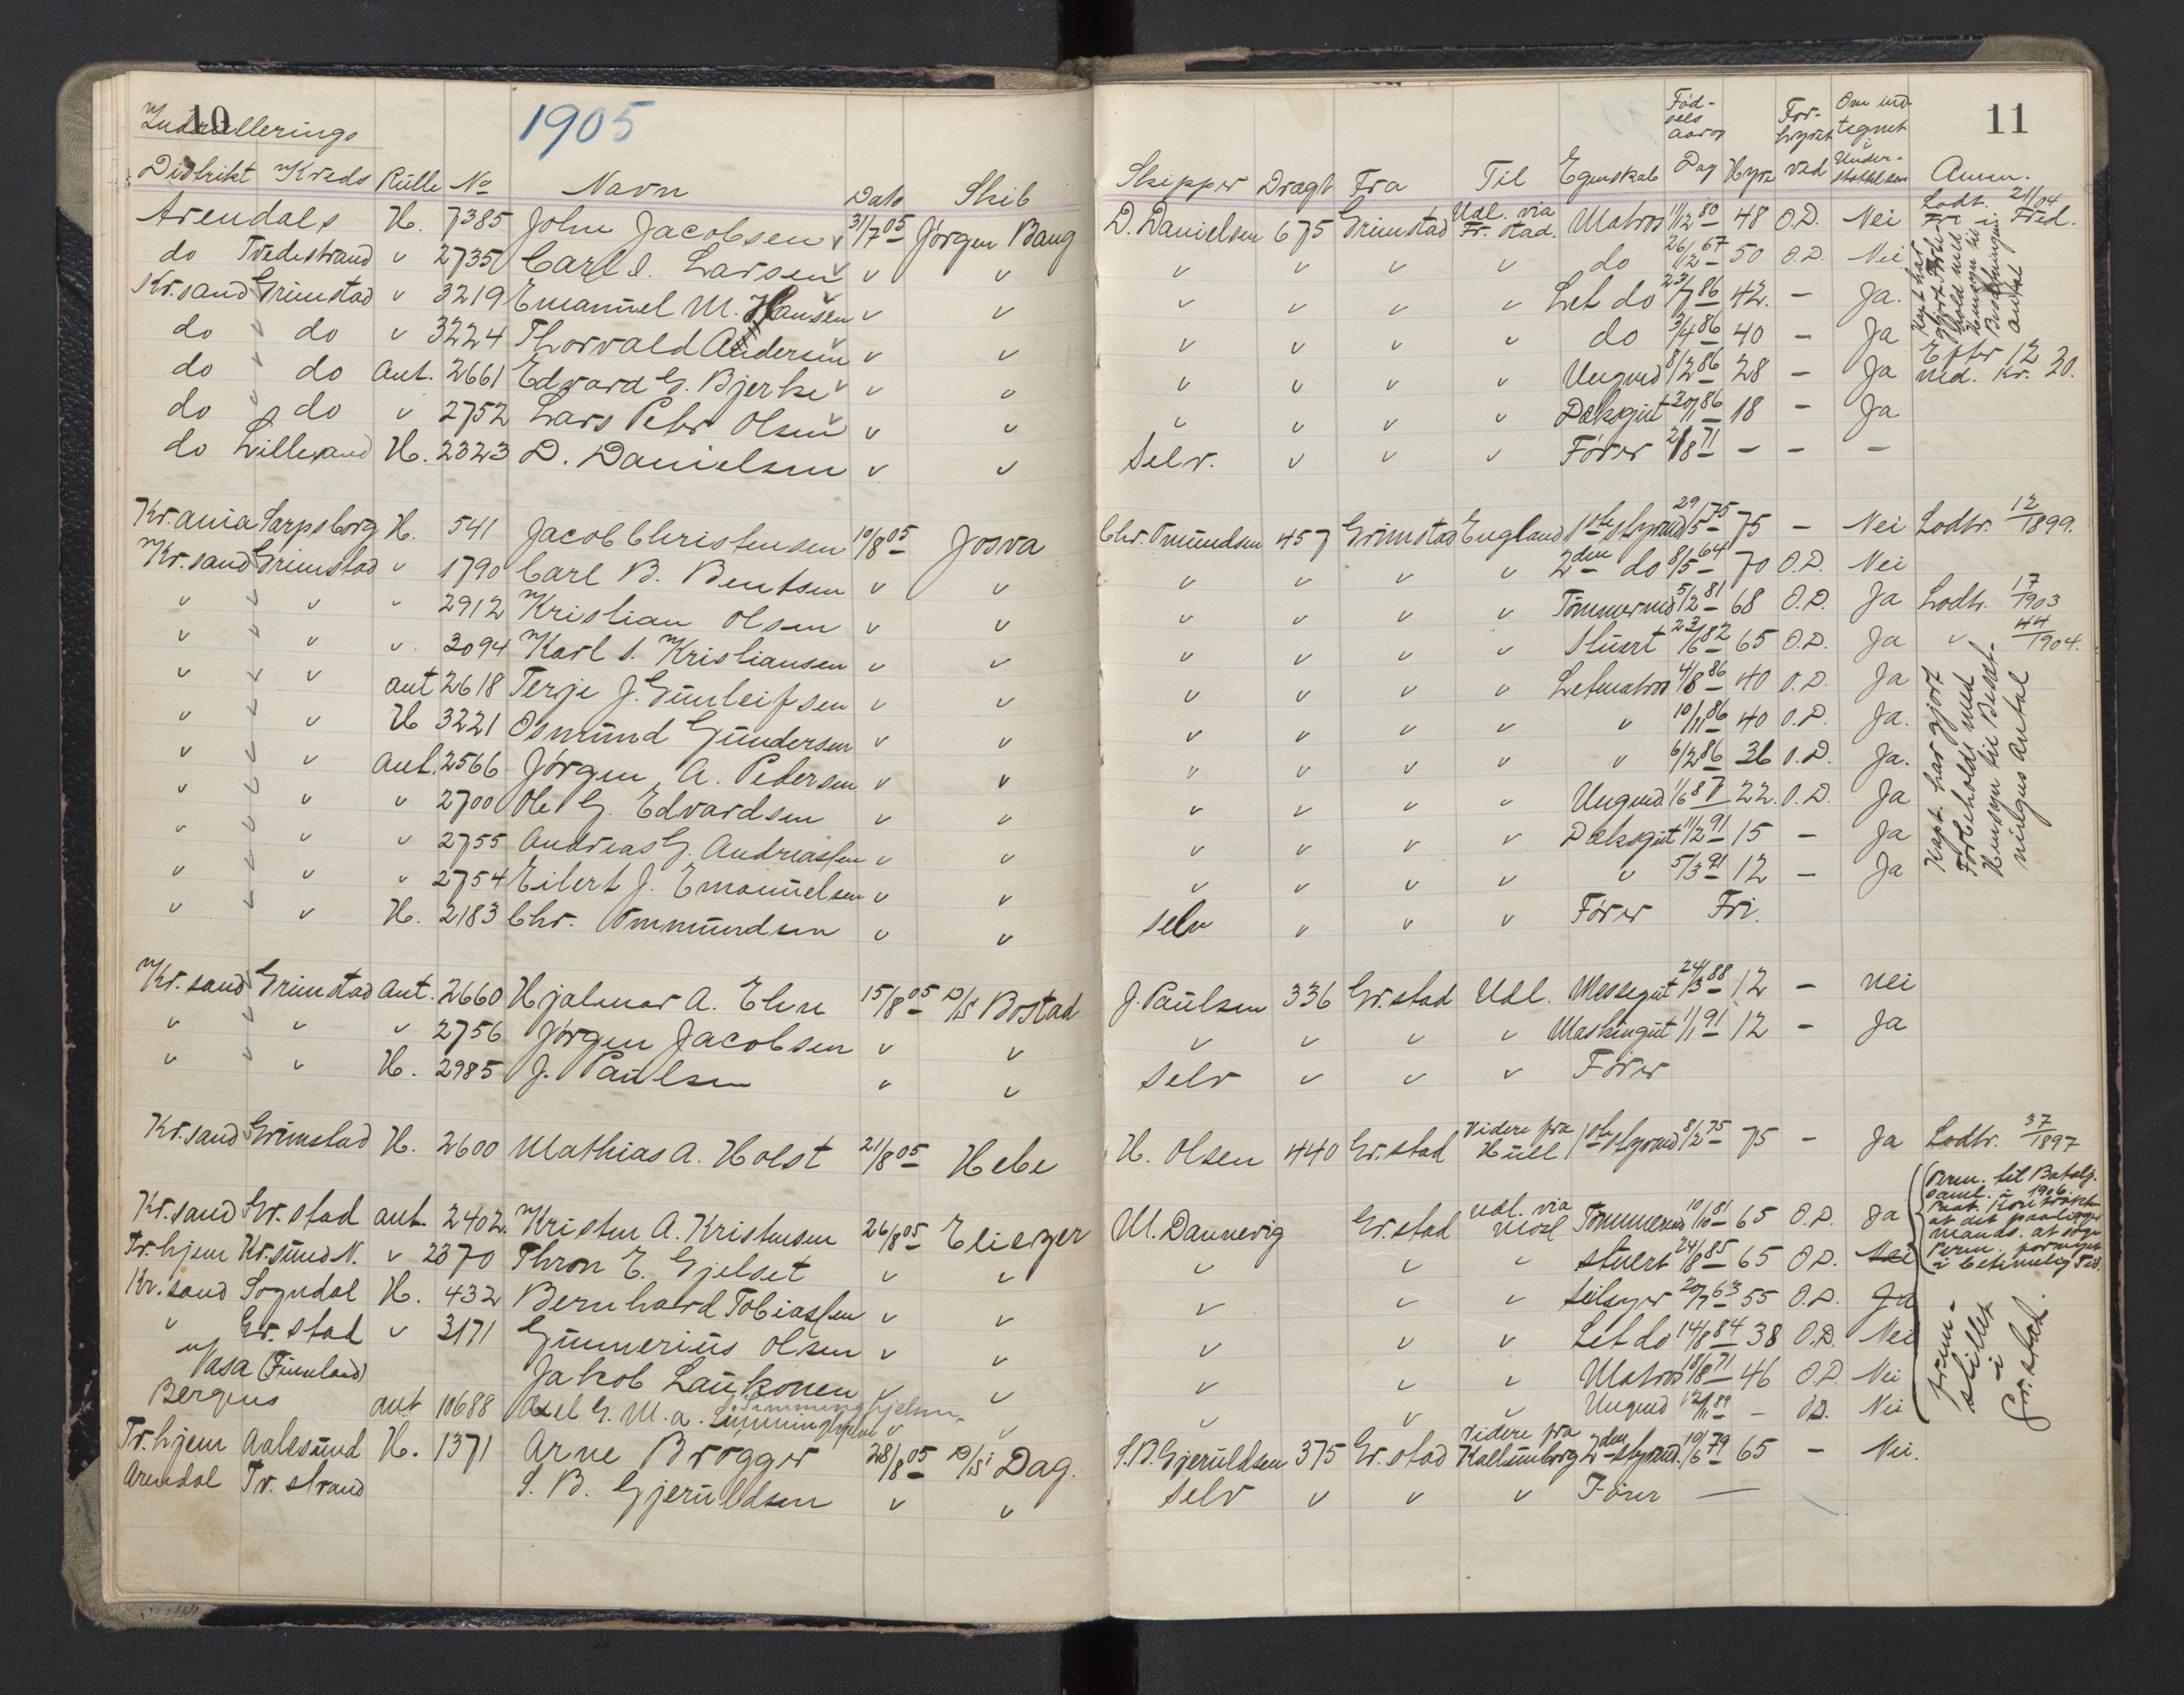 10
Indrullerings
1905
Distrikt Kreds Rulle No Navn Dato Skib
Arendals H. 7385 John Jacobsen 31/7 05 Jørgen Bang
do Tvedestrand v 2735 Carl I. Larsen v v
Kr.sand Grimstad v 3219 Emanuel M. Hansen v v
do do v 3224 Thorvald Andersen v v
do do Ant. 2661 Edvard G. Bjerke v v
do do v 2752 Lars Peter Olsen v v
do Lillesand H. 2323 D. Danielsen v v
Kr.ania Sarpsborg H. 541 Jacob Christensen 10/8 05 Josva
Kr.sand Grimstad v 1790 Carl B. Bentsen v v
v v v v 2912 Kristian Olsen v v
v v v v 3094 Karl S. Kristiansen v v
v v v ant 2618 Terje J. Gunleifsen v v
v v v H 3221 Osmund Gundersen v v
v v v ant. 2566 Jørgen A. Pedersen v v
v v v v 2700 Ole G. Edvardsen v v
v v v v 2755 Andreas G. Andreassen v v
v v v v 2754 Eilert J. Emanuelsen v v
v v v H. 2183 Chr. Ommundsen v v
Kr.sand Grimstad Ant. 2660 Hjalmar A. Ehn 15/8 05 D/S Bostad
v v v v 2756 Jørgen Jacobsen v v
v v v H. 2985 J. Paulsen v v
Kr.sand Grimstad H. 2600 Mathias A. Holst 21/8 05 Hebe
Kr.sand Gr.stad ant 2402. Kristen A. Kristensen 26/8 05 Eliezer
Tr.hjem Kr.sund N. v 2370 Thron E. Gjelset v v
Kr.sand Sogndal H. 432 Bernhard Tobiassen v v
v Gr.stad v 3171 Gunnerius Olsen v v
Vasa (Finnland) Jakob Laukonen v v
Bergens ant 10688 Axel G. M. A. Simminghjelm v v
Simminghjelm
Tr.hjem Aalesund H. 1371 Arne Brøgger 28/8 05 D/S Dag.
Arendal Tv.strand S. B. Gjeruldsen v v
11
Skipper Dragt Fra Til Egenskab Fødsels aar og Dag Hyre Forhyret ved Om indtegnet i Understøttelsen Anm.
D. Danielsen 675 Grimstad Udl. via Fr.stad. Matros 11/2 80 48 O.D. Nei Lodt. 21/04 Fri i Fred.
v v v v do 26/12 67 50 O.D. Nei
v v v v Let do 23/7 86 42. - Ja.
v v v v do 3/4 86 40 - Ja
v v v v Ungmd 8/2 86 28 - Ja
v v v v Dæksgut 20/1 86 18 - Ja
Kapt har gjort Forbehold med Hensyn til Besætningens antal
Efter 12 md. Kr. 20.
Selv. v v v Fører 21/8 71 - - -
Chr. Omundsen 457 Grimstad England 1ste Styrmd 29/5 75 75 - Nei Lodtr. 12/1899.
v v v v 2den do 8/5 64 70 O.D. Nei
v v v v Tømmermd 5/2 81 68 O.D. Ja Lodtr. 17/1903
v v v v Stuert 23/6 82 65 O.D. Ja v 44/1904.
v v v v Letmatros 4/8 86 40 O.D. Ja
v v v v v 10/11 86 40 O.D. Ja.
v v v v v 6/2 86 36 O.D. Ja.
v v v v Ungmd 1/6 87 22. O.D. Ja
v v v v Dæksgut 11/2 91 15 - Ja
v v v v v 5/3 91 12 - Ja
Kapt. har gjort Forbehold med Hensyn til Besætningens Antal
selv v v v Fører Fri.
J. Paulsen 336 Gr.stad Udl. Messegut 24/3 88 12 - Nei
v v v v Maskingut 1/1 91 12 - Ja
Selv v v v Fører
H. Olsen 440 Gr.stad Videre fra Hull 1ste Styrmd 8/2 75 75 - Ja Lodtr. 37/1897
M. Dannevig Gr.stad udl. via Tømmermd 10/10 81 65 O.D. Ja
v v v Stuert 24/8 85 65 O.D. Nei
v v v Seilmger 20/7 63 55 O.D. Ja
v v v Let do 14/8 84 38 O.D. Nei
v v v Matros 18/8 71 46 O.D. Nei
v v v Ungmd 12/11 89 - O.D. Nei
Perm. til Batalj. saml. i 1906. Paat. Kontrakten at det paaligger Mands. at søge Perm. fornyet i betimelig Tid.
frem-
stillet
i
Gr.stad.
S.B. Gjeruldsen 375 Gr.stad Videre fra Kallunborg 2den Styrmd. 10/6 79 65 - Nei.
Selv v v v Fører -